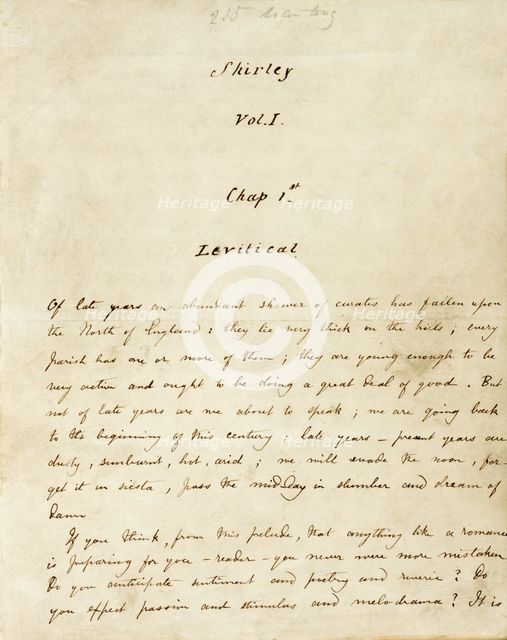 215
Shirley
Vol. I.
Chap 1st.
Levitical.
Of late years an abundant shower of curates has fallen upon
the North of England: they lie very thick on the hills; every
parish has one or more of them; they are young enough to be
very active and ought to be doing a great deal of good. But
not of late years are we about to speak; we are going back
to the beginning of this century: late years – present years are
dusty, sunburnt, hot, arid; we will evade the noon, for-
get it in siesta, pass the mid-day in slumber and dream of
dawn
If you think, from this prelude, that anything like a romance
is preparing for you – reader – you never were more mistaken
Do you anticipate sentiment and poetry and reverie? Do
you expect passion and stimulus and melodrama? It is
Heritage Heritage
Heritage Heritage
Heritage Heritage